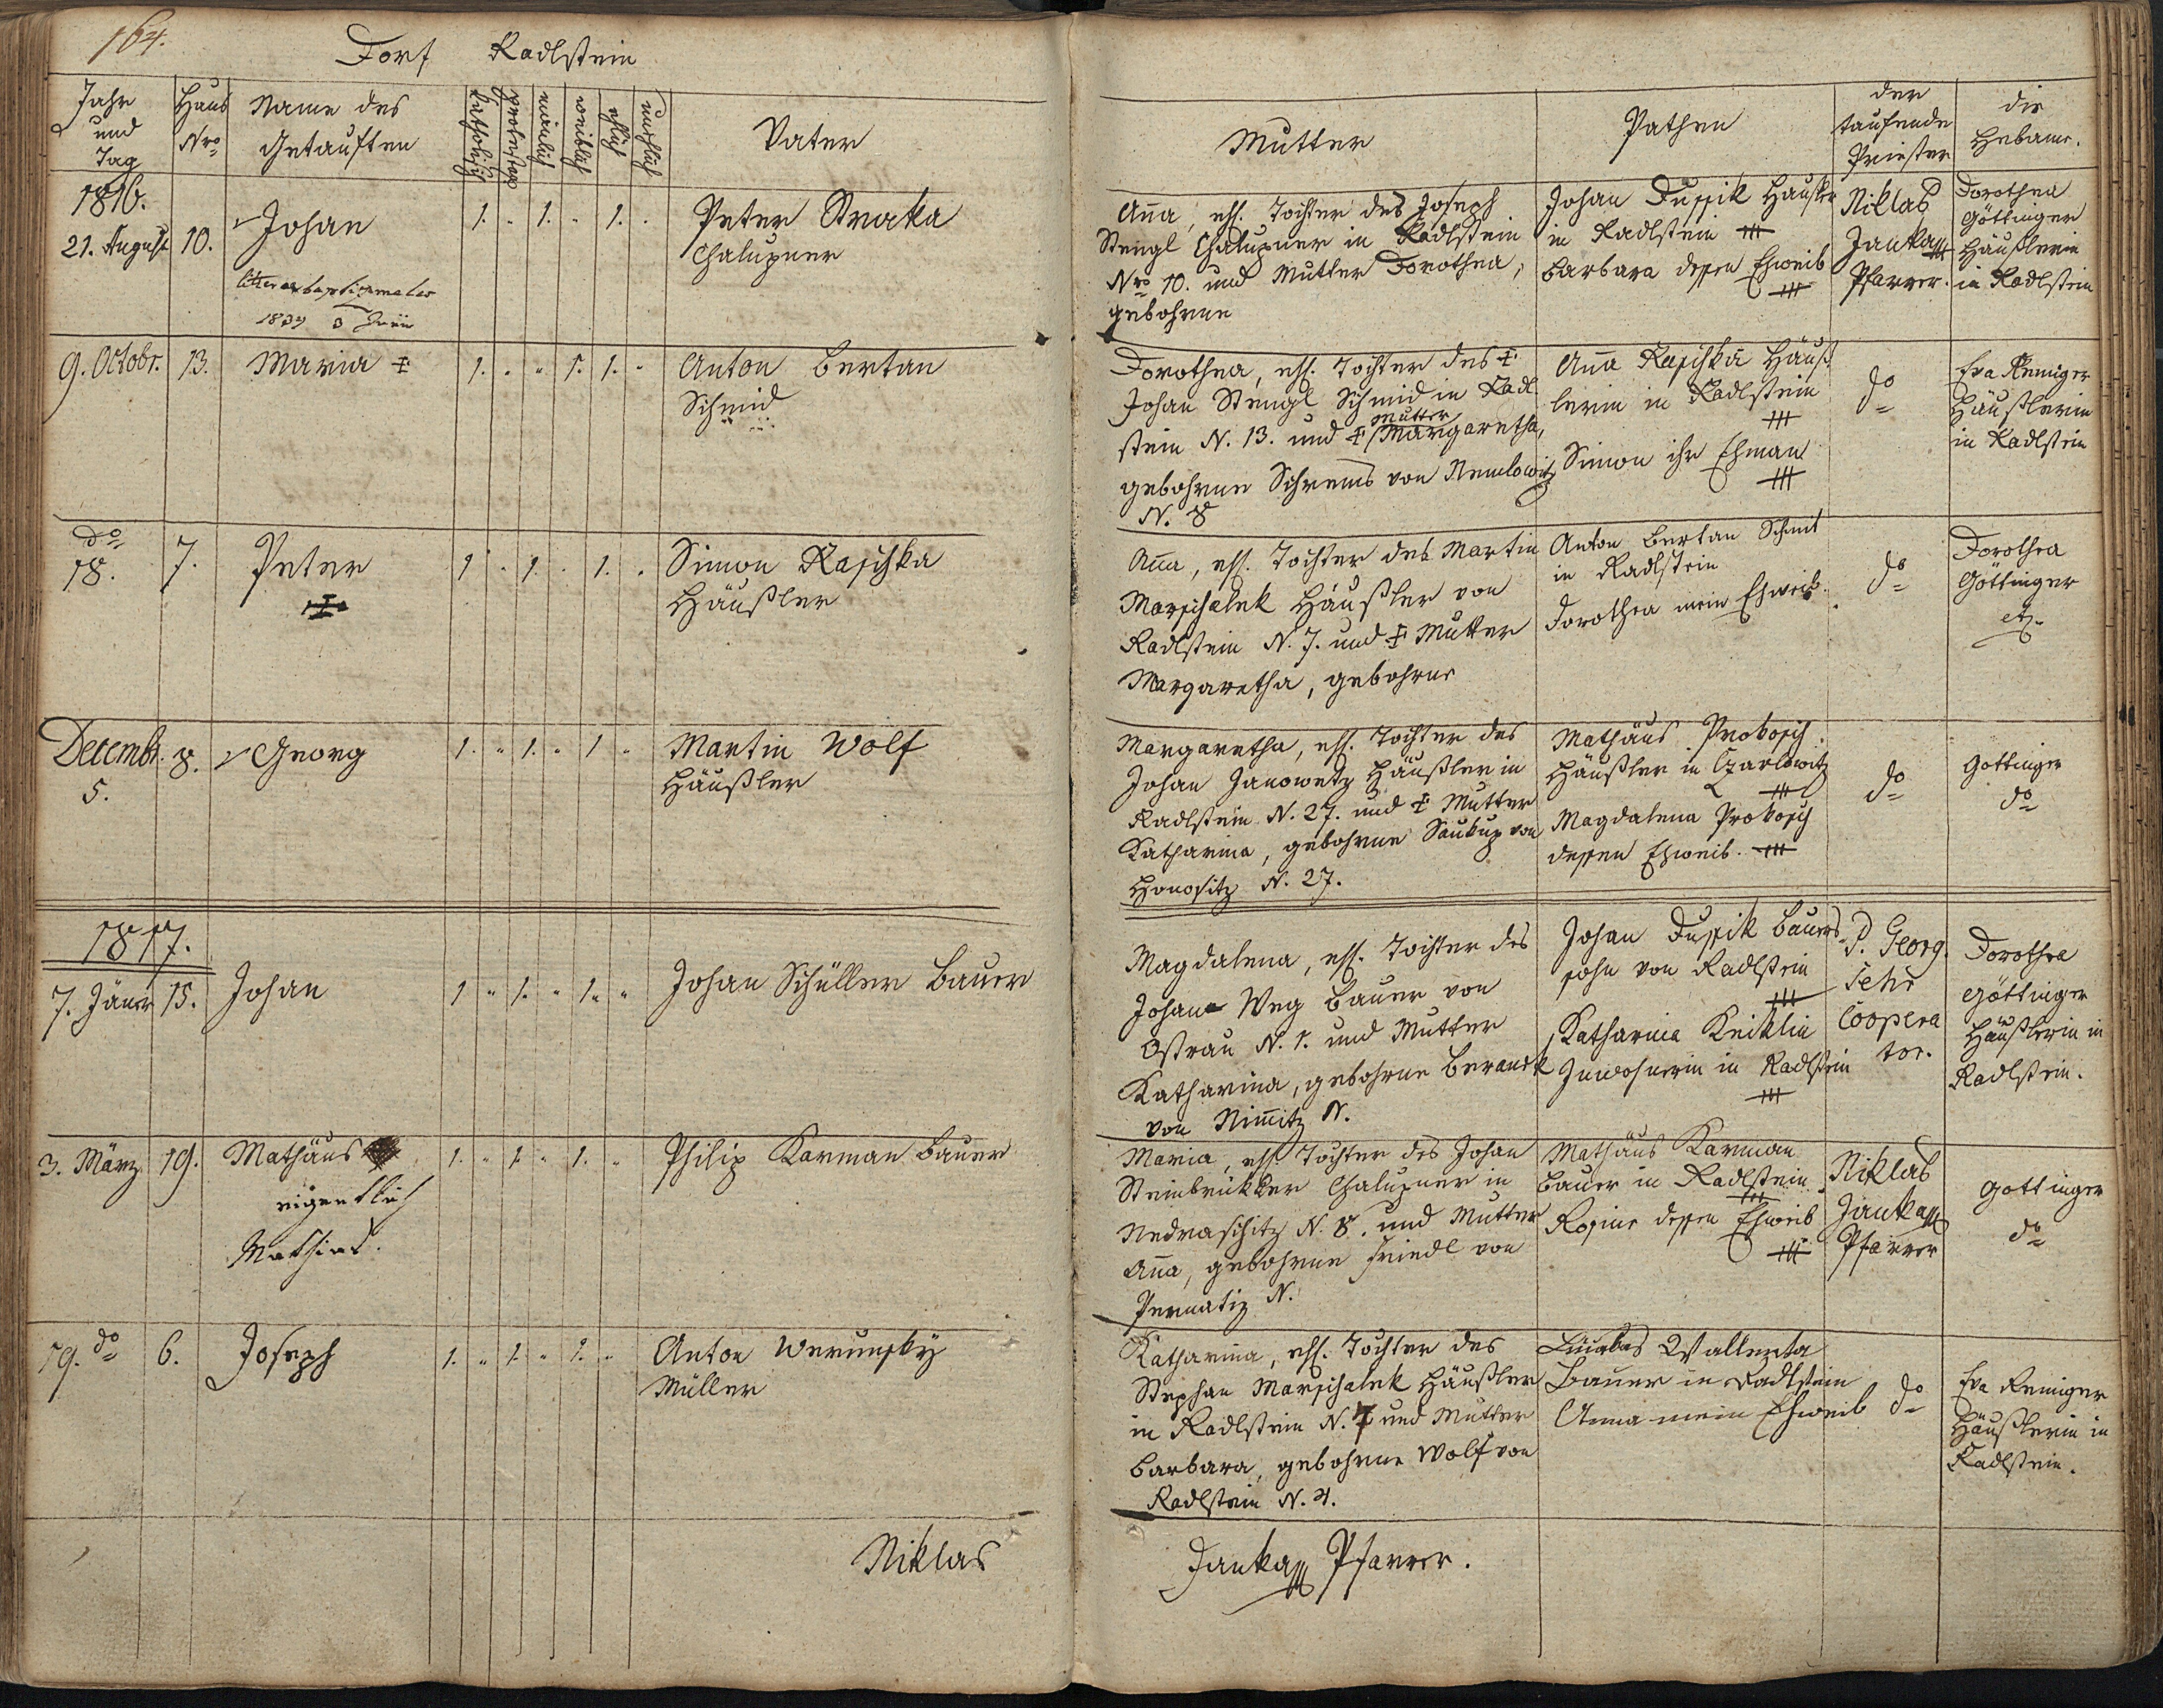 164.
Dorf Radlstein
Jahr und Tag
Haus Nro
Name des Getauften
katholisch
protestan
mänlich
weiblich
ehlich
unehlich
Vater
Mutter
Pathen
der taufende Priester
die Hebame.
1816.
21. August
10.
Johan
litterae baptismales
1837 3 Junii
1. " 1. " 1. "
Peter Straka
Chalupner
Aña, ehl. Tochter des Joseph
Stengl Chalupner in Radlstein
Nro 10. und Mutter Dorothea,
gebohrne
Johan Dussik Häusler
in Radlstein +++
Barbara dessen Eheweib
+++
Niklas
Janka
Pfarrer.
Dorothea
Göttinger
Häußlerin
in Radlstein
9. Octobr.
13.
Maria ‡
1. " " 1. 1. "
Anton Bertan
Schmid
Dorothea, ehl. Tochter des ‡
Johan Stengl Schmid in Radl-
stein N. 13. und ‡ Mutter Margaretha,
gebohrne Schrems von Nemlowitz
N. 8
Aña Raschka Häuß
lerin in Radlstein
+++
Simon ihr Ehman
+++
do
Eva Reiniger
Häußlerin
in Radlstein
do
18.
7.
Peter
‡
1 " 1. " 1. "
Simon Raschka
Häußler
Aña, ehl. Tochter des Martin
Marschalek Häußler von
Radlstein N. 7. und ‡ Mutter
Margaretha, gebohrne
Anton Bertan Schmit
in Radlstein
Dorothea mein Eheweib.
do
Dorothea
Göttinger
etz.
Decembr.
5.
8.
Georg
1. " 1. " 1 "
Martin Wolf
Häußler
Margaretha, ehl. Tochter des
Johan Janowetz Häußler in
Radlstein N. 27. und ‡ Mutter
Katharina, gebohrne Saukup von
Honositz N. 27.
Mathäus Prokosch
Häußler in Czarlowitz
+++
Magdalena Prokosch
dessen Eheweib. +++
do
Gottinger
do
1817.
7. Jäner
15.
Johan
1 " 1. " 1. "
Johan Schüller Bauer
Magdalena, ehl. Tochter des
Johan Weg Bauer von
Ostrau N. 1. und Mutter
Katharina, gebohrne Beranek
von Nimitz N.
Johan Dussik Bauers
sohn von Radlstein
+++
Katharina
Inwohnerin in Radlstein
+++
P. Georg
Coopera
tor.
Dorothea
Göttinger
Häußlerin in
Radlstein.
3. März
19.
Mathäus
eigentlich
Mathias.
1. " 1. " 1. "
Philip Karman Bauer
Maria, ehl. Tochter des Johan
Steinbrükker Chalupner in
Nedraschitz N. 8. und Mutter
Aña, gebohrne Friedl von
Pernatiz N.
Mathäus Karman
Bauer in Radlstein
+++
Rosine dessen Eheweib
+++
Niklas
Janka
Pfarrer
Gottinger
do
19. do
6.
Joseph
1. " 1. " 1. "
Anton Werunsky
Müller
Katharina, ehl. Tochter des
Stephan Marschalek Häußler
in Radlstein N. 7 und Mutter
Barbara, gebohrne Wolf von
Radlstein N. 4.
Wallenta
Bauer in Radlstein
Anna mein Eheweib
do
Eva Reiniger
Häußlerin in
Radlstein.
Niklas Janka Pfarrer.